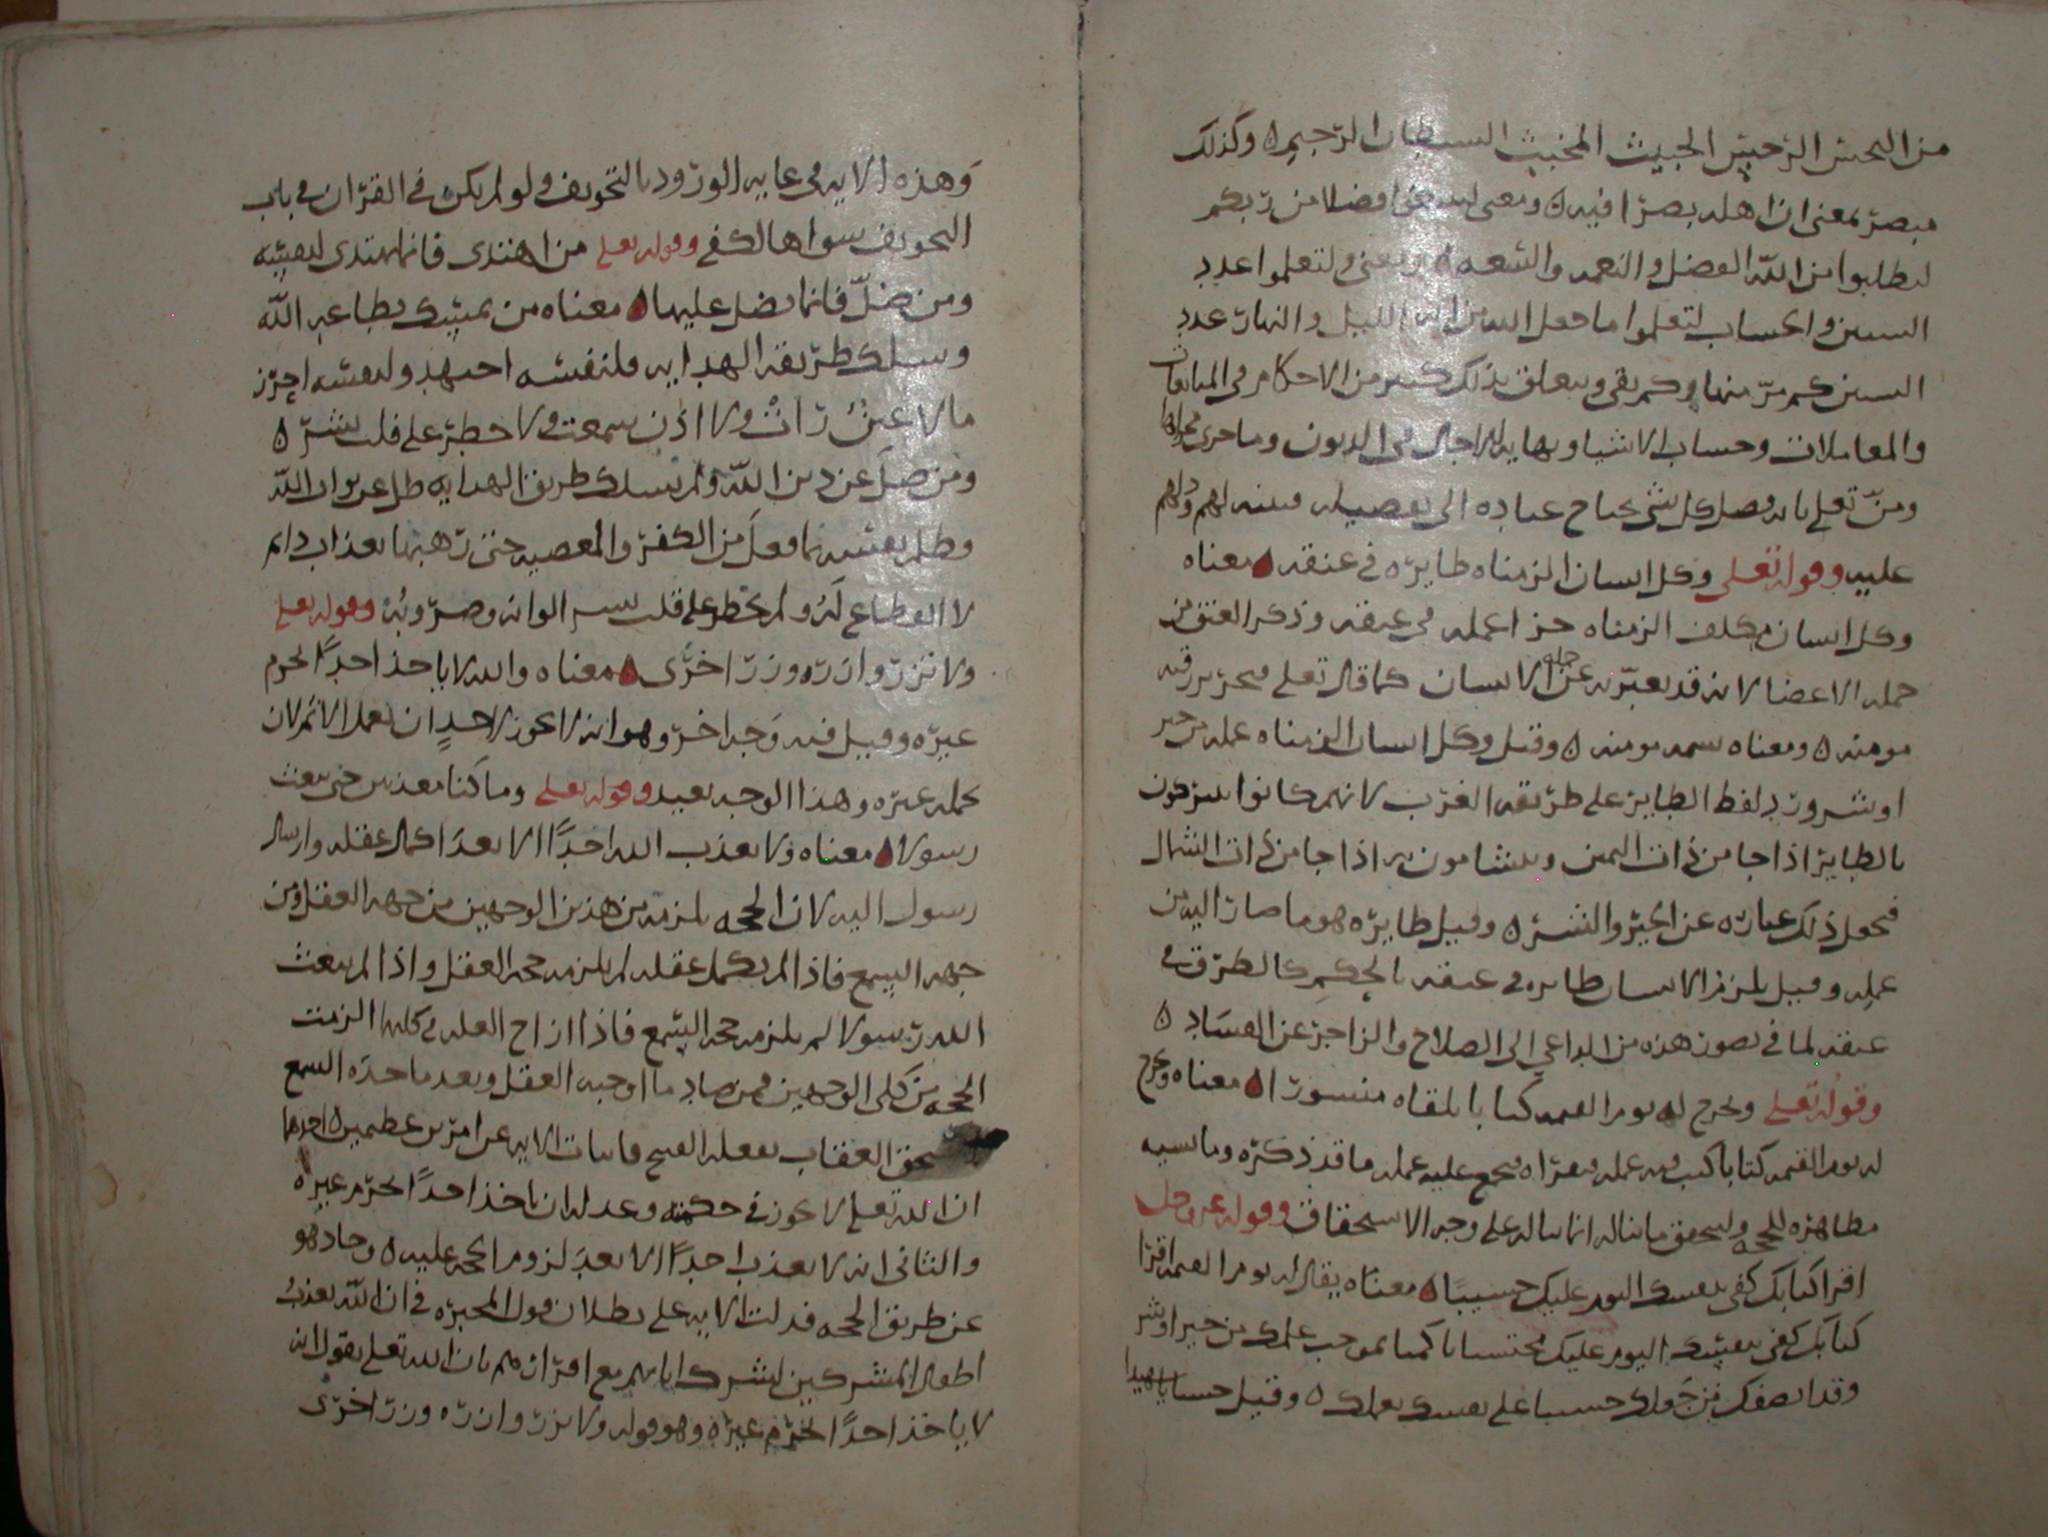 من النجس الرجس الخبيث المخبث الشيطان الرجيم ٥ وكذلك
مبصر بمعنى ان اهله بصرا فيه ٥ ومعنى لتبتغوا فضلا من ربكم
لتطلبوا من الله الفضل والنعمه والسعه ٥ ومعنى ولتعلموا عدد
السنين والحساب لتعلموا ما جعل الله من الليل والنهار عدد
السنين كم مر منها وكم بقي ويتعلق بذلك كثير من الاحكام في المبايعات
والمعاملات وحساب الاشيا ونهايه الاجال في الديون وما جرى مجراها
ومن تعلى بانه فصل كل شي يحتاج عباده الى تفصيله فبينه لهم ودلهم
عليه وقوله تعلى وكل انسان الزمناه طايره في عنقه ٥ معناه
وكل انسان مكلف الزمناه جزا عمله في عنقه وذكر العنق من
جمله الاعضا لانه قد يعبر به عن جمله الانسان كما قال تعلى فتحرير رقبه
مومنه ٥ ومعناه نسمه مومنه ٥ وقيل وكل انسان الزمناه عمله من خير
او شر ورد لفظ الطاير على طريقه العرب لانهم كانوا يتبركون
بالطاير اذا جا من ذات اليمين ويتشامون به اذا جا من ذات الشمال
فجعل ذلك عباره عن الخير والشر ٥ وقيل طايره هو ما صار اليه من
عمله وقيل يلزم الانسان طايره في عنقه بالحكم كالطوق في
عنقه لما في تصور هذه من الداعي الى الصلاح والزاجر عن الفساد ٥
وقوله تعلى ونخرج له يوم القيمه كتابا يلقاه منشورا ٥ معناه ونخرج
له يوم القيمه كتابا كتب فيه عمله فيقراه فيجمع عليه عمله ما قد ذكره وما نسيه
مظاهره للحجه وليحقق ما يناله انما يناله على وجه الاستحقاق وقوله عز وجل
اقرا كتابك كفى بنفسك اليوم عليك حسيبا ٥ معناه يقال له يوم القيمه اقرا
كتابك كفى بنفسك اليوم عليك محتسبا حاكما بموجب عملك من خير او شر
وقد انصفك من جعلك حسيبا على نفسك بعملك ٥ وقيل حسيبا شهيدا
وهذه الايه في غايه الورود بالتخويف ولو لم يكن في القران في باب
التخويف سواها لكفى وقوله تعلى من اهتدى فانما يهتدى لنفسه
ومن ضل فانما يضل عليها ٥ معناه من تمسك بطاعه الله
وسلك طريقه الهدايه فلنفسه اجتهد ولنفسه احرز
ما لا عين رات ولا اذن سمعت ولا خطر على قلب بشر ٥
ومن ضل عن دين الله ولم يسلك طريق الهدايه ضل عن ثواب الله
وظلم نفسه بما فعل من الكفر والمعصيه حتى رهبها بعذاب دايم
لا انقطاع له ولم يخطر على قلب بشر الوانه وضروبه وقوله تعلى
ولا تزر وازره وزر اخرى ٥ معناه والله لا ياخذ احدا لجرم
غيره وقيل فيه وجه اخر وهو انه لا يجوز لاحد ان يعمل الاثم لان
يحمله غيره وهذا الوجه بعيد وقوله تعلى وما كنا معذبين حتى نبعث
رسولا ٥ معناه ولا يعذب الله احدا الا بعد اكمال عقله وارسال
رسول اليه لان الحجه يلزمه من هذين الوجهين من جهه العقل ومن
جهه السمع فاذا لم يكمل عقله لم يلزمه حجه العقل واذا لم يبعث
الله رسولا لم يلزمه حجه السمع فاذا ازاح العله في كليها الزمت
الحجه من كلى الوجهين فمن صاد ما اوجبه العقل وبعد ما حده السمع
العقاب بفعله القبيح فابانت الايه عن امرين عظيمين ٥ احدهما
ان الله تعلى لا يجوز في حكمته وعدله ان ياخذ احدا لجرم غيره
والثاني انه لا يعذب احدا الا بعد لزوم الحجه عليه ٥ وحاد هو
عن طريق الحجه فدلت الايه على بطلان قول المجبره في ان الله يعذب
اطفال المشركين لشرك ابايهم مع اقرارهم بان الله تعلى يقول انه
لا ياخذ احدا لجرم غيره وهو قوله ولا تزر وازره وزر اخرى